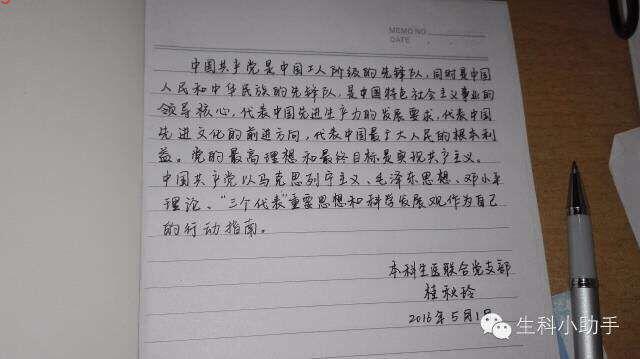 MEMO NO.
DATE
中国共产党是中国工人阶级的先锋队,同时是中国
人民和中华民族的先锋队,是中国特色社会主义事业的
领导核心,代表中国先进生产力的发展要求,代表中国
先进文化的前进方向,代表中国最广大人民的根本利
益。党的最高理想和最终目标是实现共产主义。
中国共产党以马克思列宁主义、毛泽东思想、邓小平
理论、“三个代表”重要思想和科学发展观作为自己
的行动指南。
本科生医联合党支部
桂秋玲
2016年5月1日
生科小助手